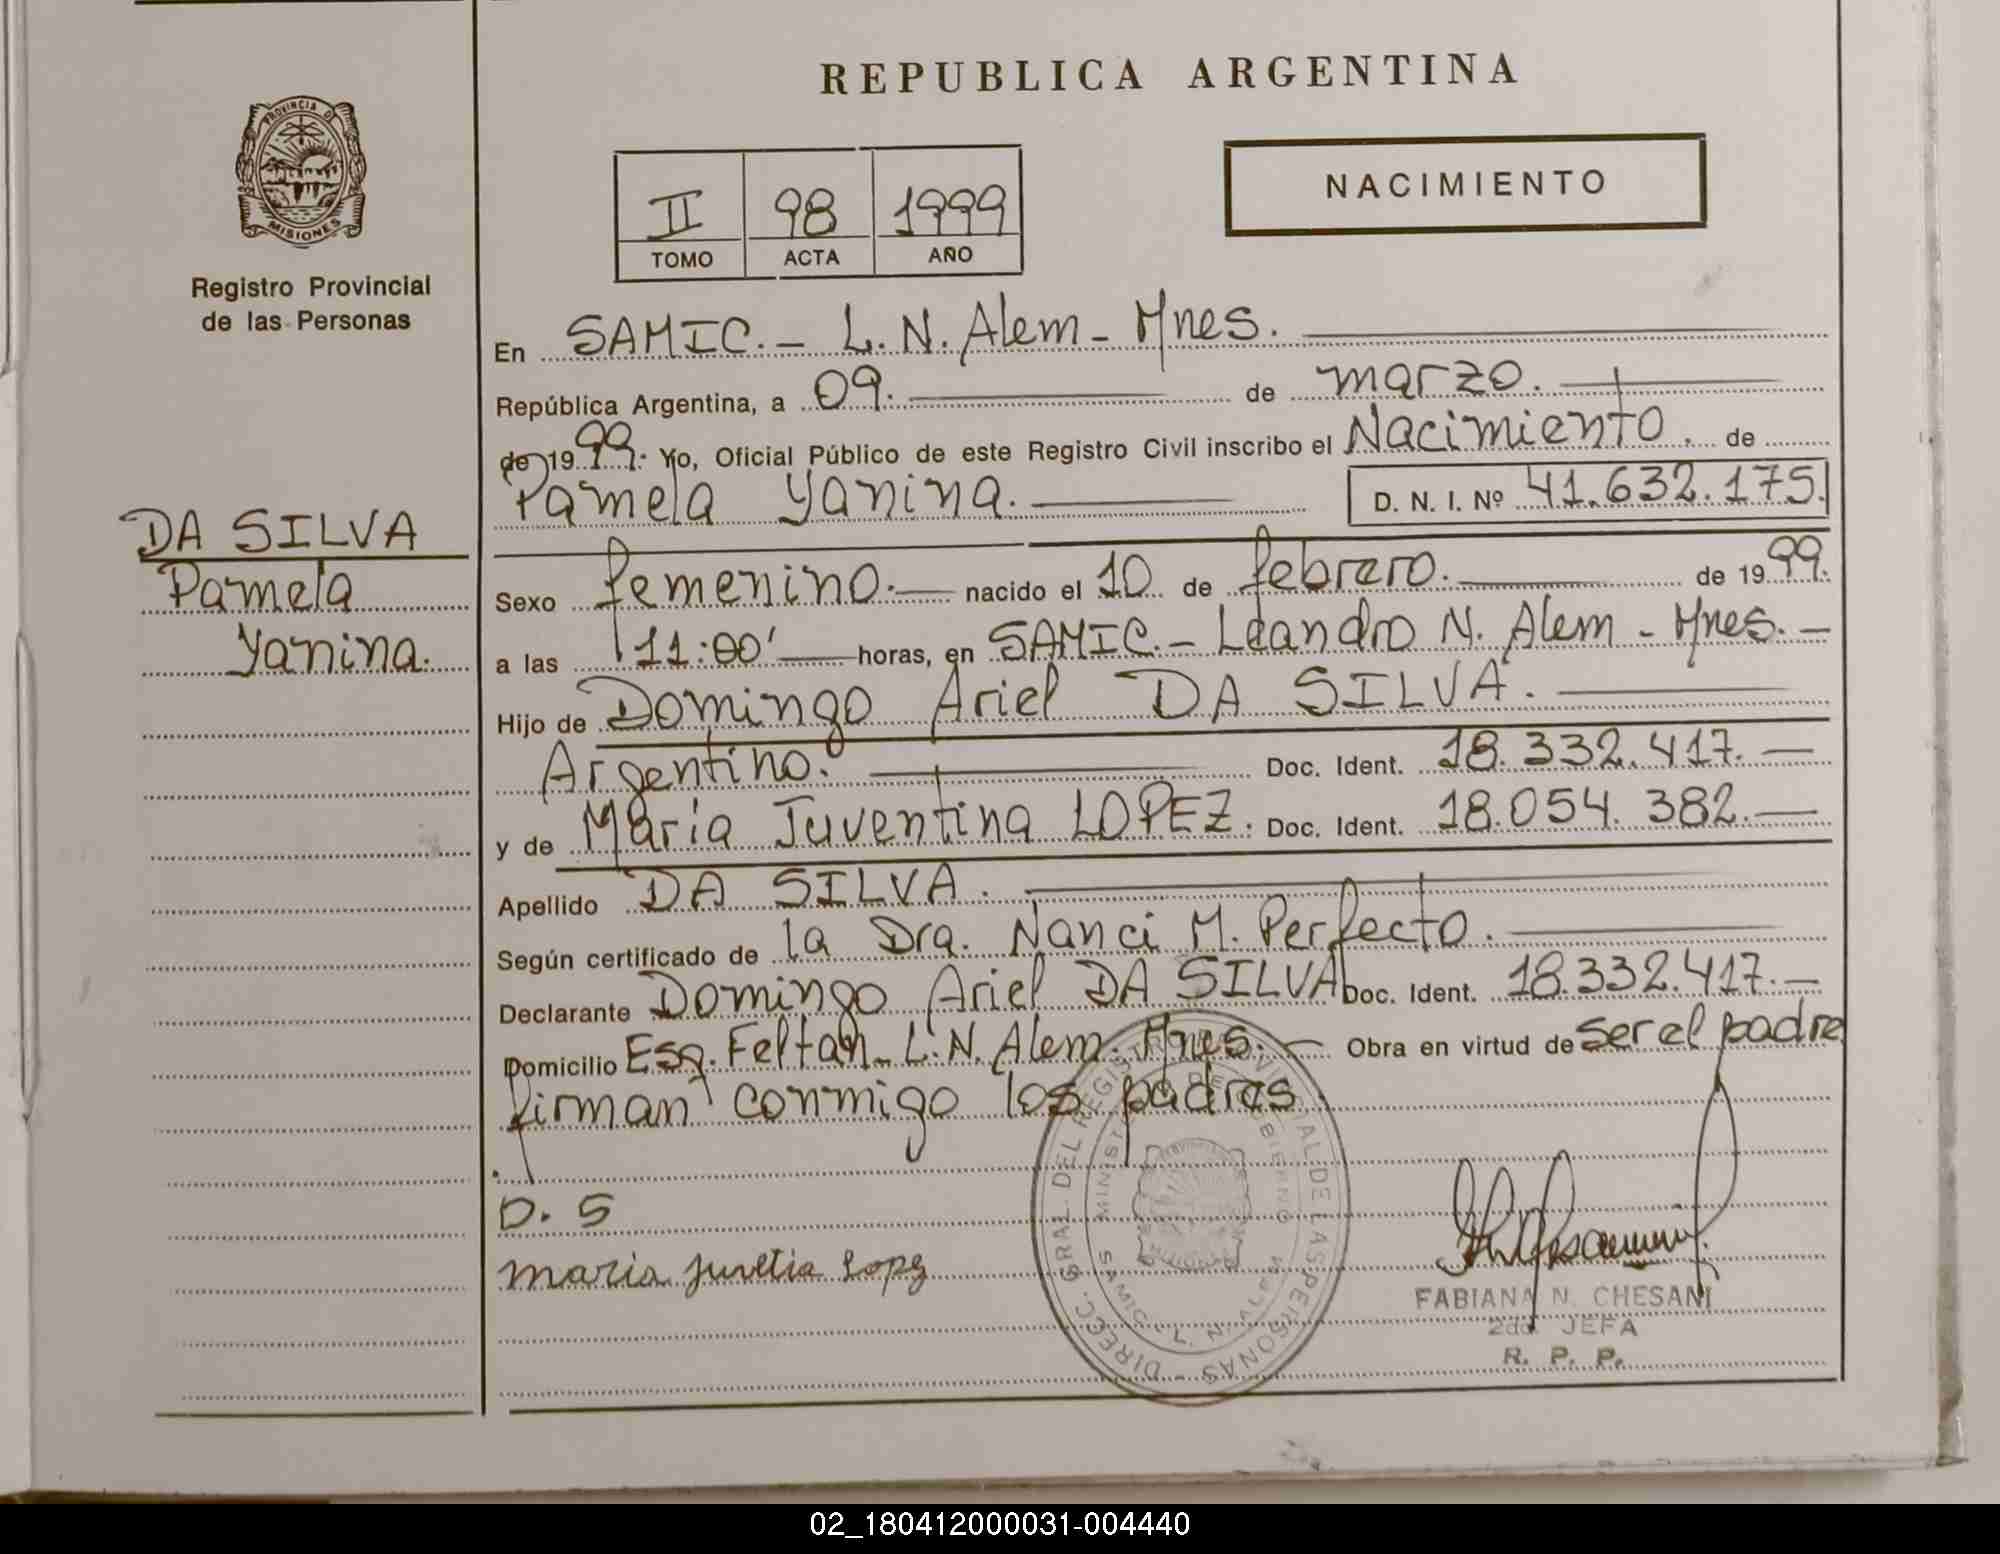 REPUBLICA ARGENTINA
PROVINCIA DE
MISIONES
Registro Provincial
de las Personas
II 98 1999
TOMO ACTA AÑO
NACIMIENTO
En SAMIC. - L. N. Alem - Mnes.
República Argentina, a 09. de marzo.
de 1999. Yo, Oficial Público de este Registro Civil inscribo el Nacimiento. de
Pamela Yanina. D. N. I. Nº 41.632.175.
DA SILVA
Pamela
Yanina.
Sexo femenino. nacido el 10 de febrero. de 1999.
a las 11:00' horas, en SAMIC. - Leandro N. Alem - Mnes. -
Hijo de Domingo Ariel DA SILVA.
Argentino. Doc. Ident. 18.332.417. -
y de María Juventina LOPEZ. Doc. Ident. 18.054.382. -
Apellido DA SILVA.
Según certificado de la Dra. Nanci M. Perfecto.
Declarante Domingo Ariel DA SILVA Doc. Ident. 18.332.417. -
Domicilio Esq. Feltan - L. N. Alem. Mnes. - Obra en virtud de ser el padre
firman conmigo los padres
D. S
maria juvetia Lopez
DIRECC. GRAL. DEL REGISTRO PROVINCIAL DE LAS PERSONAS
MINISTERIO DE GOBIERNO
SAMIC - L. N. ALEM
FABIANA N. CHESANI
2da. JEFA
R. P. P.
02_180412000031-004440